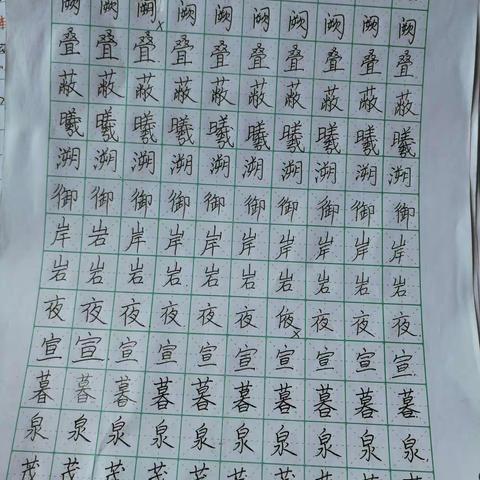 阙阙阙阙阙阙阙阙阙阙
叠叠叠叠叠叠叠叠叠叠
蔽蔽蔽蔽蔽蔽蔽蔽蔽蔽
曦曦曦曦曦曦曦曦曦曦
溯溯溯溯溯溯溯溯溯溯
御御御御御御御御御御
岸岩岸岸岸岸岸岸岸岸
岩岩岩岩岩岩岩岩岩岩
夜夜夜夜夜夜夜夜夜
宣宣宣宣宣宣宣宣宣宣
暮暮暮暮暮暮暮暮暮暮
泉泉泉泉泉泉泉泉泉泉
茂茂茂茂茂茂茂茂茂茂